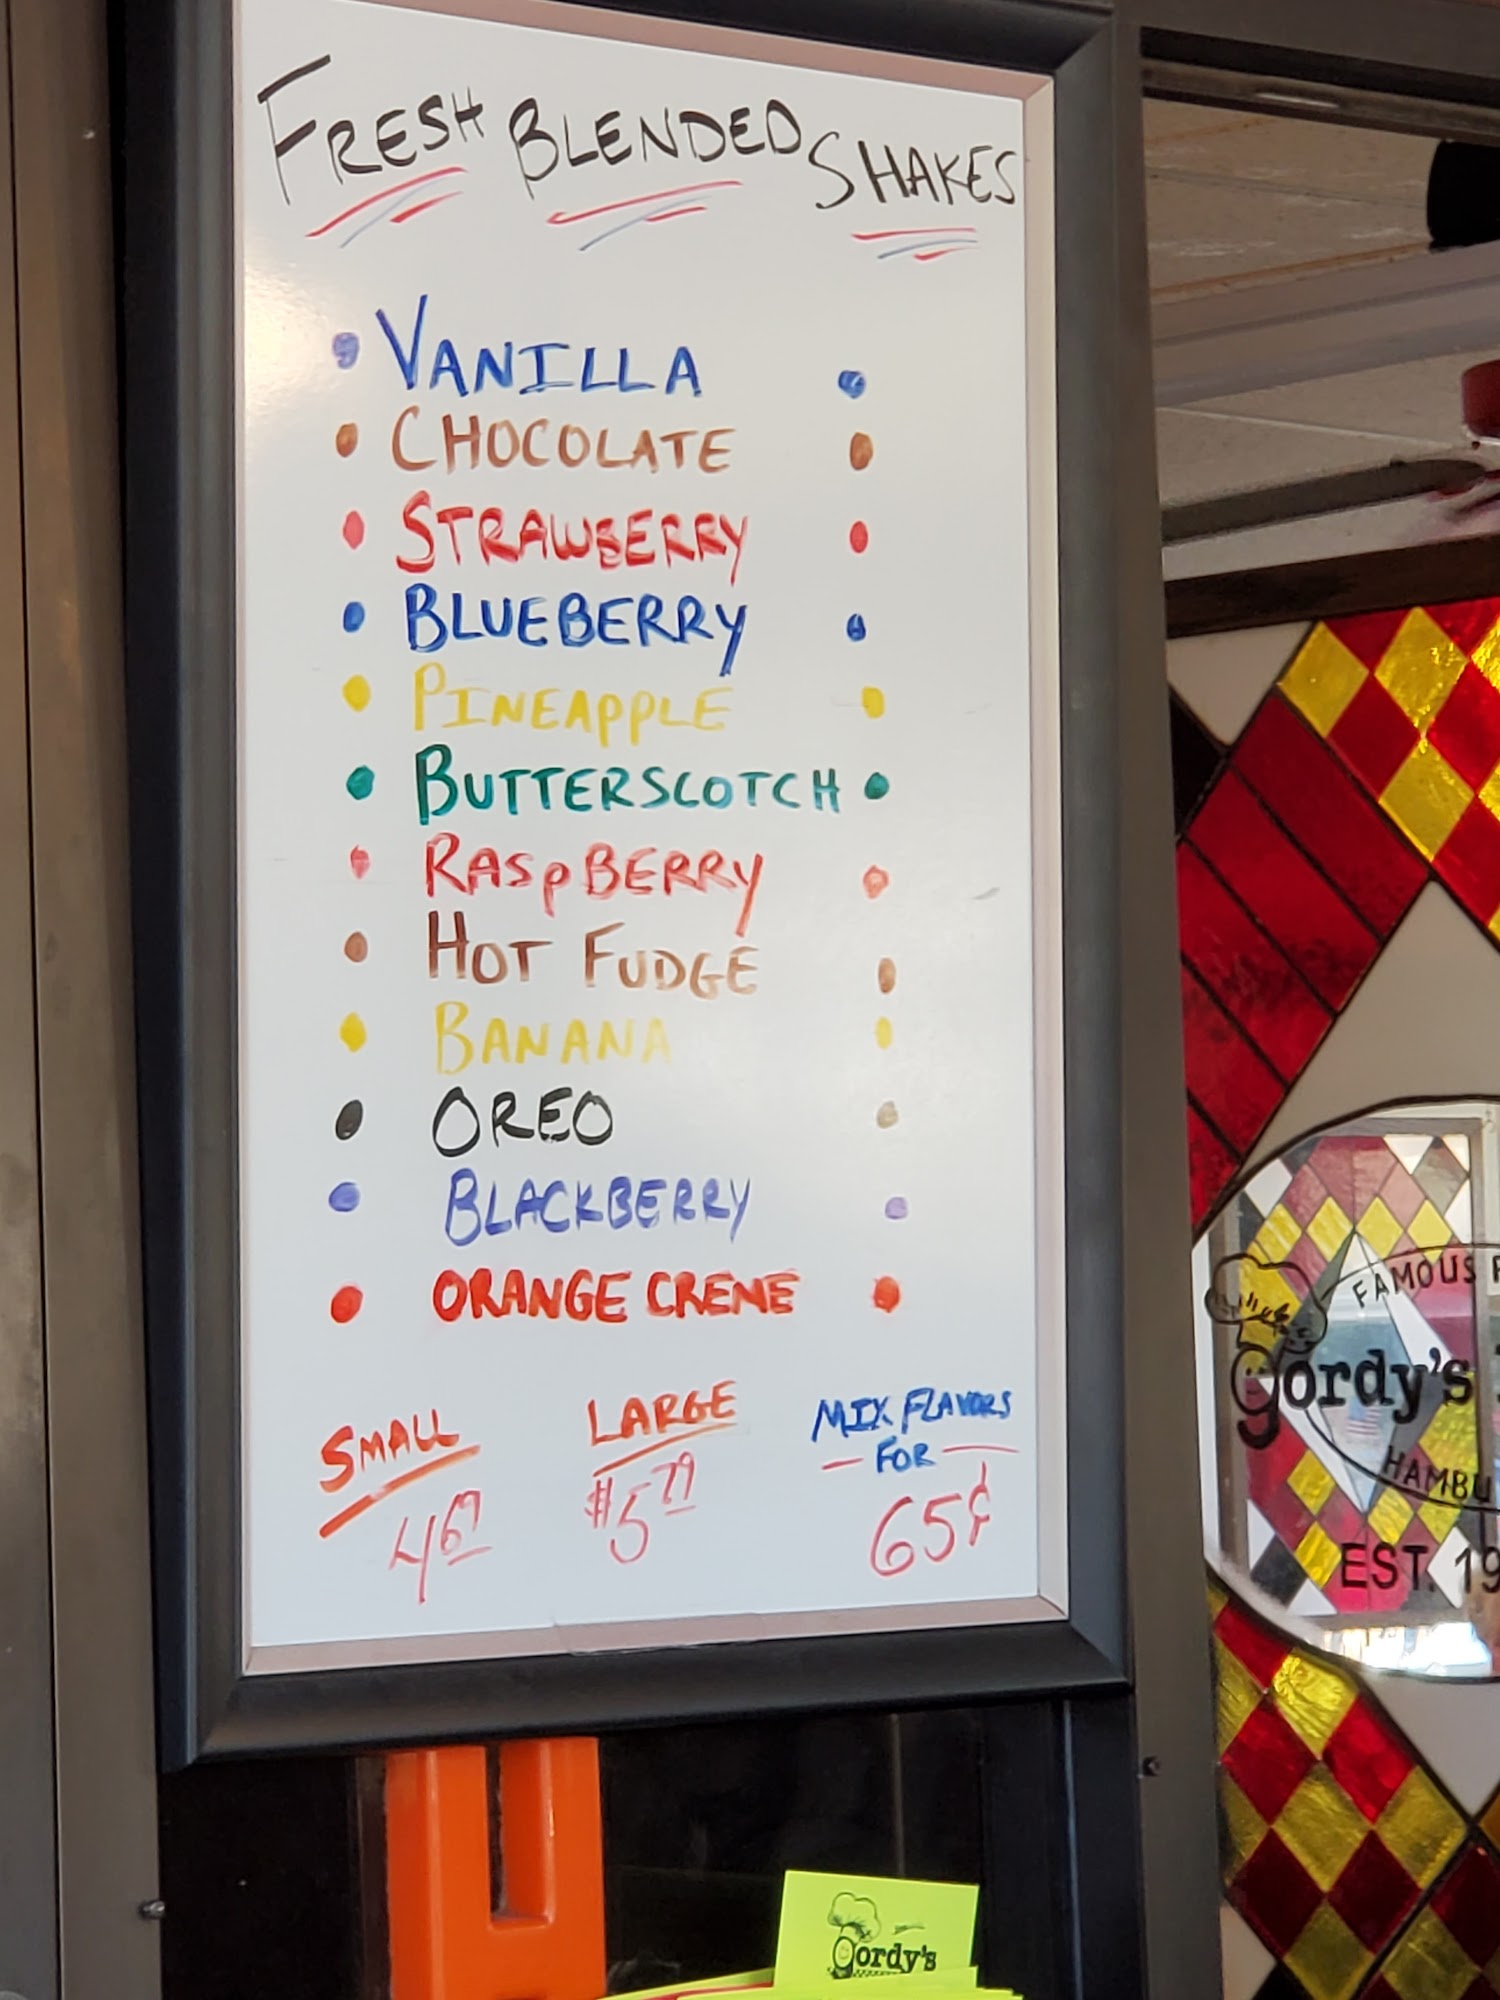 FRESH BLENDED SHAKES
• VANILLA •
• CHOCOLATE •
• STRAWBERRY •
• BLUEBERRY •
• PINEAPPLE •
• BUTTERSCOTCH •
• RASPBERRY •
• HOT FUDGE •
• BANANA •
• OREO •
• BLACKBERRY •
• ORANGE CREME •
SMALL
4 69
LARGE
$5 79
MIX FLAVORS
- FOR -
65¢
FAMOUS
Gordy's
HAMBU
EST. 19
Gordy's